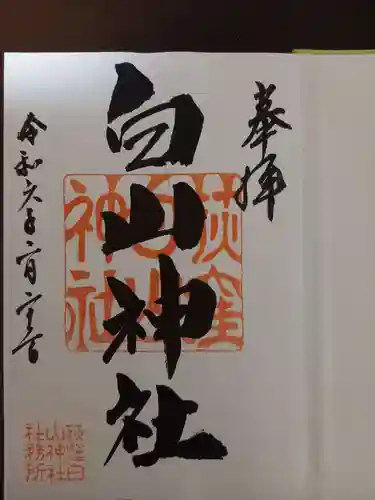 奉拝
白山神社
荻窪
白山
神社
令和六年二月二十三日
荻窪白
山神社
社務所